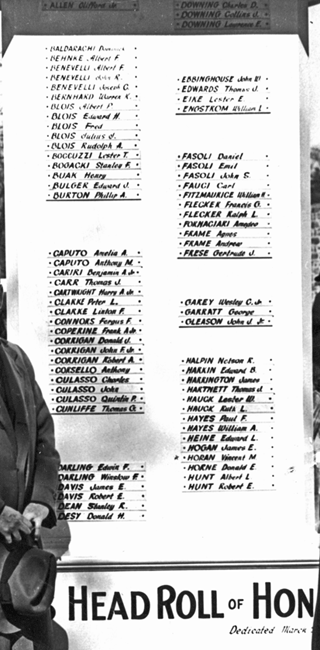 ALLEN Clifford Jr.
BALDARACHI Dominick
BEHNKE Albert F.
BENEVELLI Albert F.
BENEVELLI John R.
BENEVELLI Joseph C.
BERNHARD Warren R.
BLOIS Albert P.
BLOIS Edward H.
BLOIS Fred
BLOIS Julius J.
BLOIS Rudolph A.
BOCCUZZI Lester T.
BOGACKI Stanley F.
BUAK Henry
BULGER Edward J.
BURTON Phillip A.
CAPUTO Amelia A.
CAPUTO Anthony M.
CARIRI Benjamin A Jr
CARR Thomas J.
CARTWRIGHT Harry A Jr
CLARKE Peter L.
CLARKE Liston F.
CONNORS Fergus F.
COPERINE Frank A Jr
CORRIGAN Donald J.
CORRIGAN John F. Jr
CORRIGAN Robert A.
CORSELLO Anthony
CULASSO Charles
CULASSO John
CULASSO Quintin P.
CUNLIFFE Thomas G.
DARLING Edwin F.
DARLING Winslow F.
DAVIS James E.
DAVIS Robert E.
DEAN Stanley R.
DESY Donald H.
DOWNING Charles D.
DOWNING Collins J.
DOWNING Lawrence F.
EBBINGHOUSE John W.
EDWARDS Thomas J.
EIKE Lester E.
ENGSTROM William L.
FASOLI Daniel
FASOLI Emil
FASOLI John S.
FAUCI Carl
FITZMAURICE William H
FLECKER Francis G.
FLECKER Ralph L.
FORNACIARI Amadeo
FRAME Agnes
FRAME Andrew
FRESE Gertrude J.
GAREY Wesley C. Jr
GARRATT George
GLEASON John J. Jr.
HALPIN Nelson R.
HARKIN Edward B.
HARRINGTON James
HARTNETT Thomas J.
HAUCK Lester W.
HAUCK Ruth L.
HAYES Paul F.
HAYES William A.
HEINE Edward L.
HOGAN James E.
* HORAN Vincent M
HORNE Donald E
HUNT Albert L
HUNT Robert E.
HEAD ROLL OF HON
Dedicated March